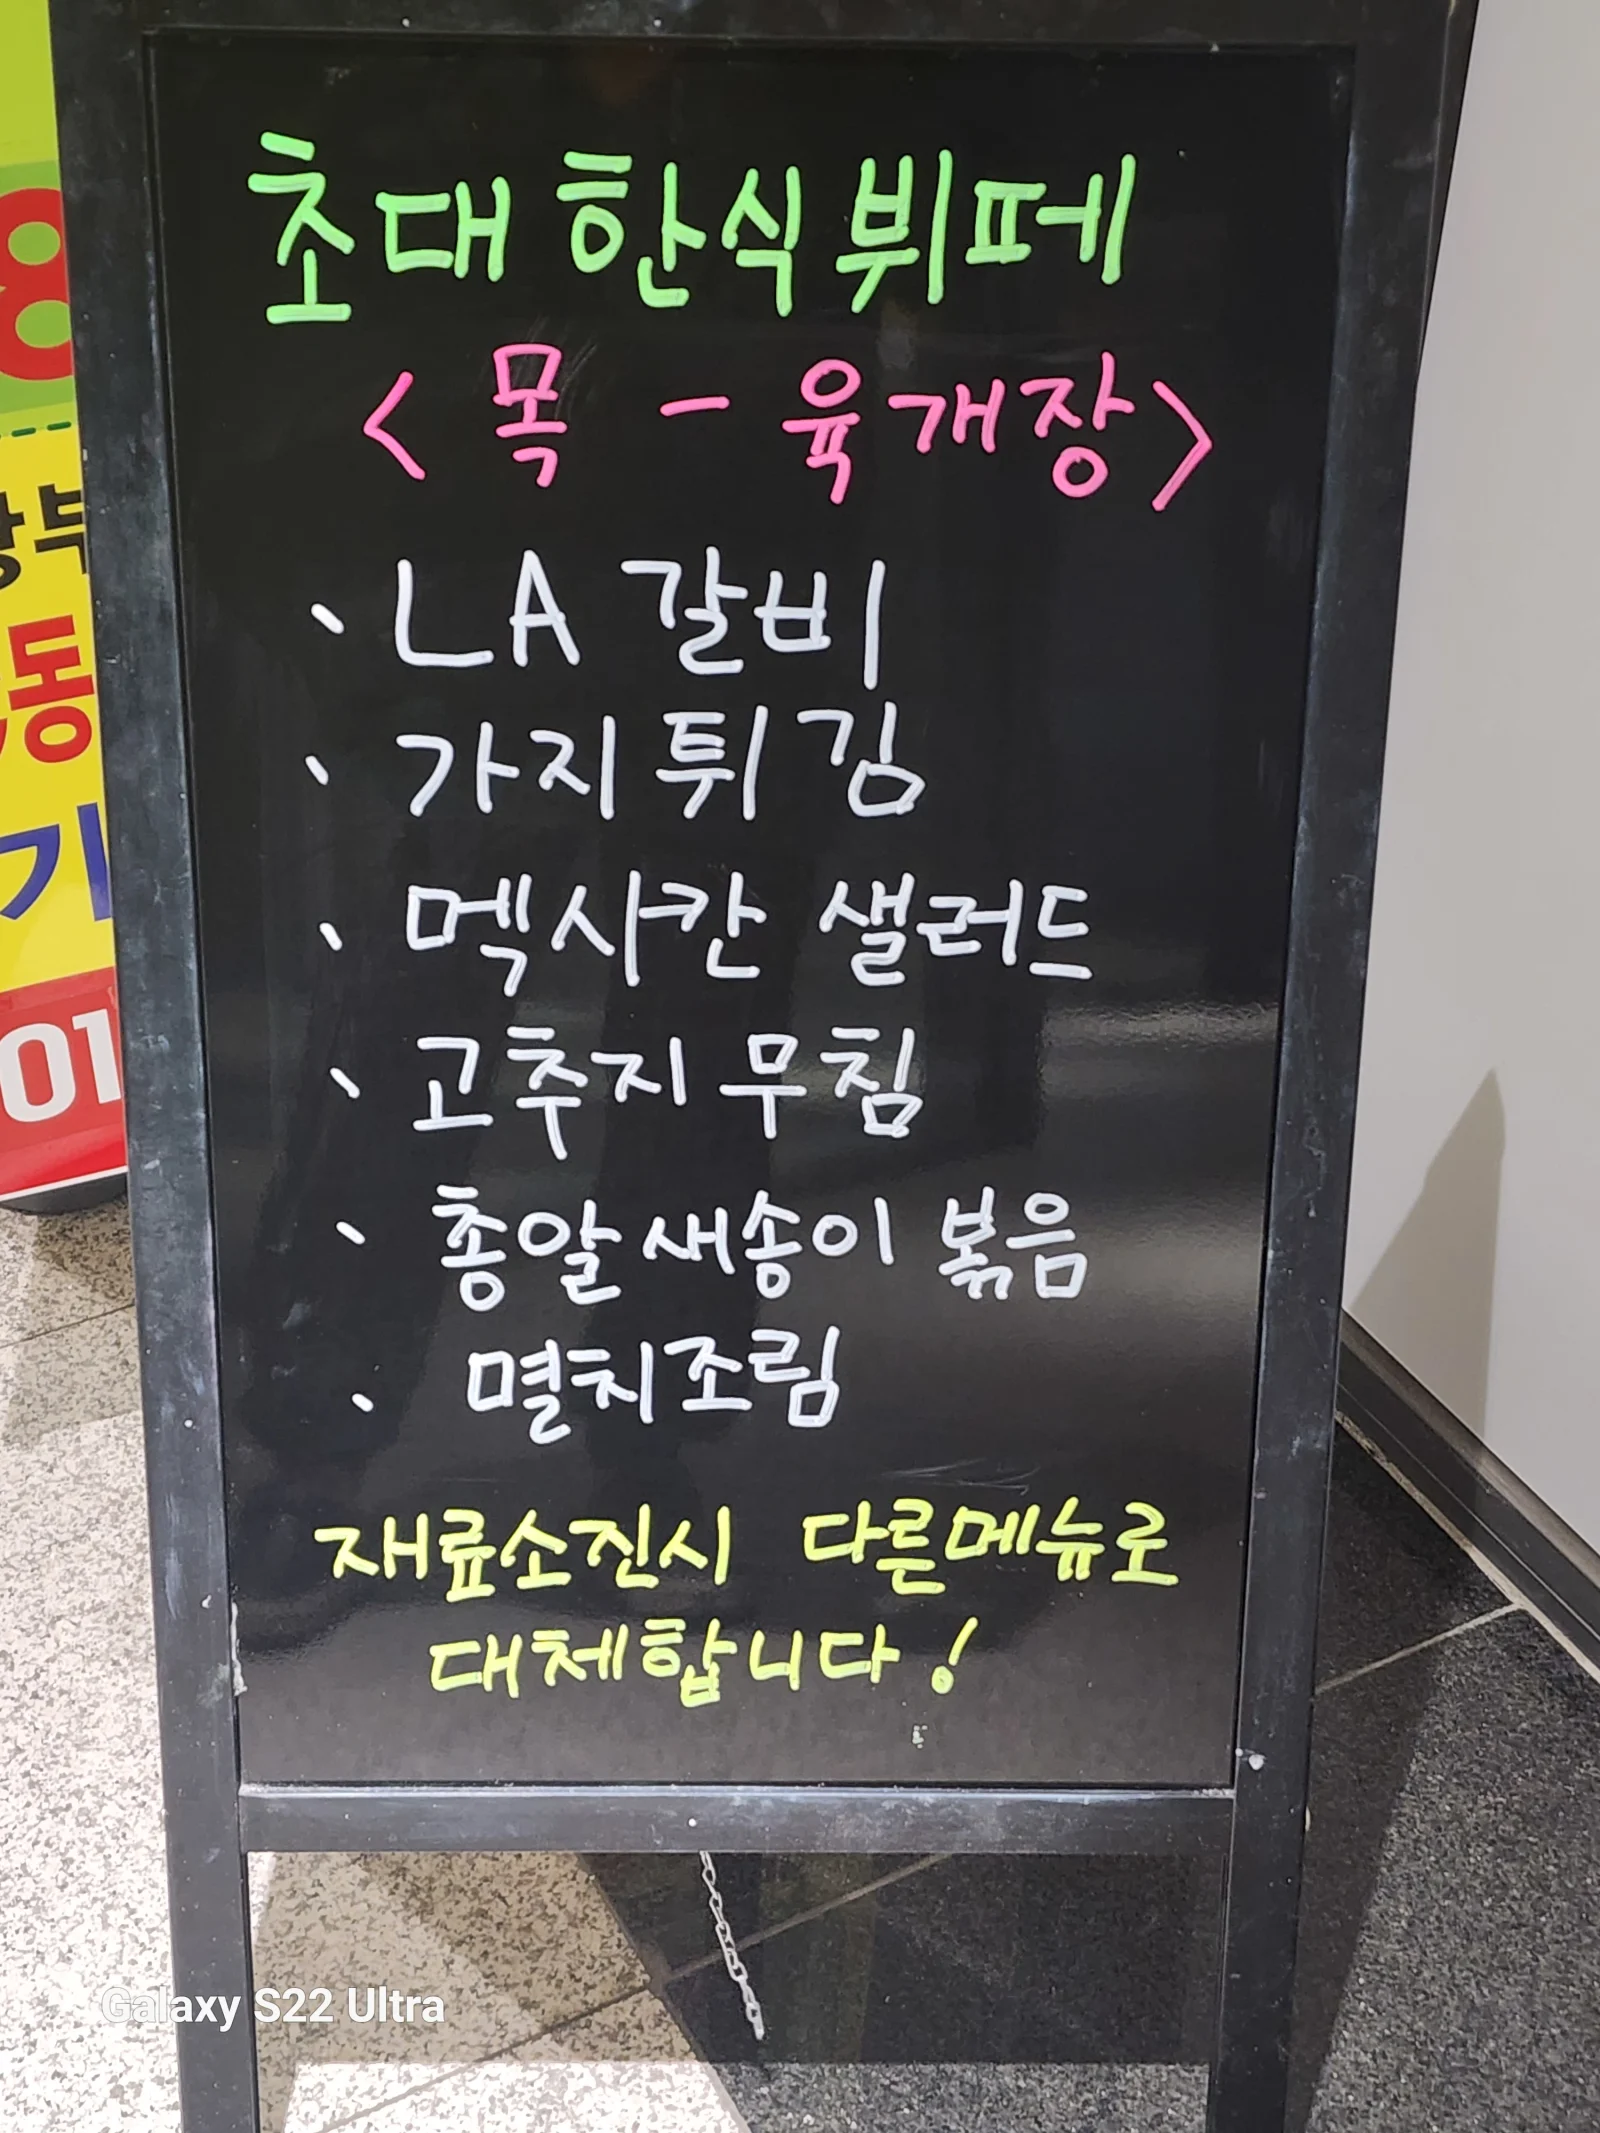 초대 한식뷔페
< 목 - 육개장>
· LA 갈비
· 가지튀김
· 멕시칸 샐러드
· 고추지 무침
· 총알새송이 볶음
· 멸치조림
재료소진시 다른메뉴로
대체합니다!
8
동
기
01
Galaxy S22 Ultra